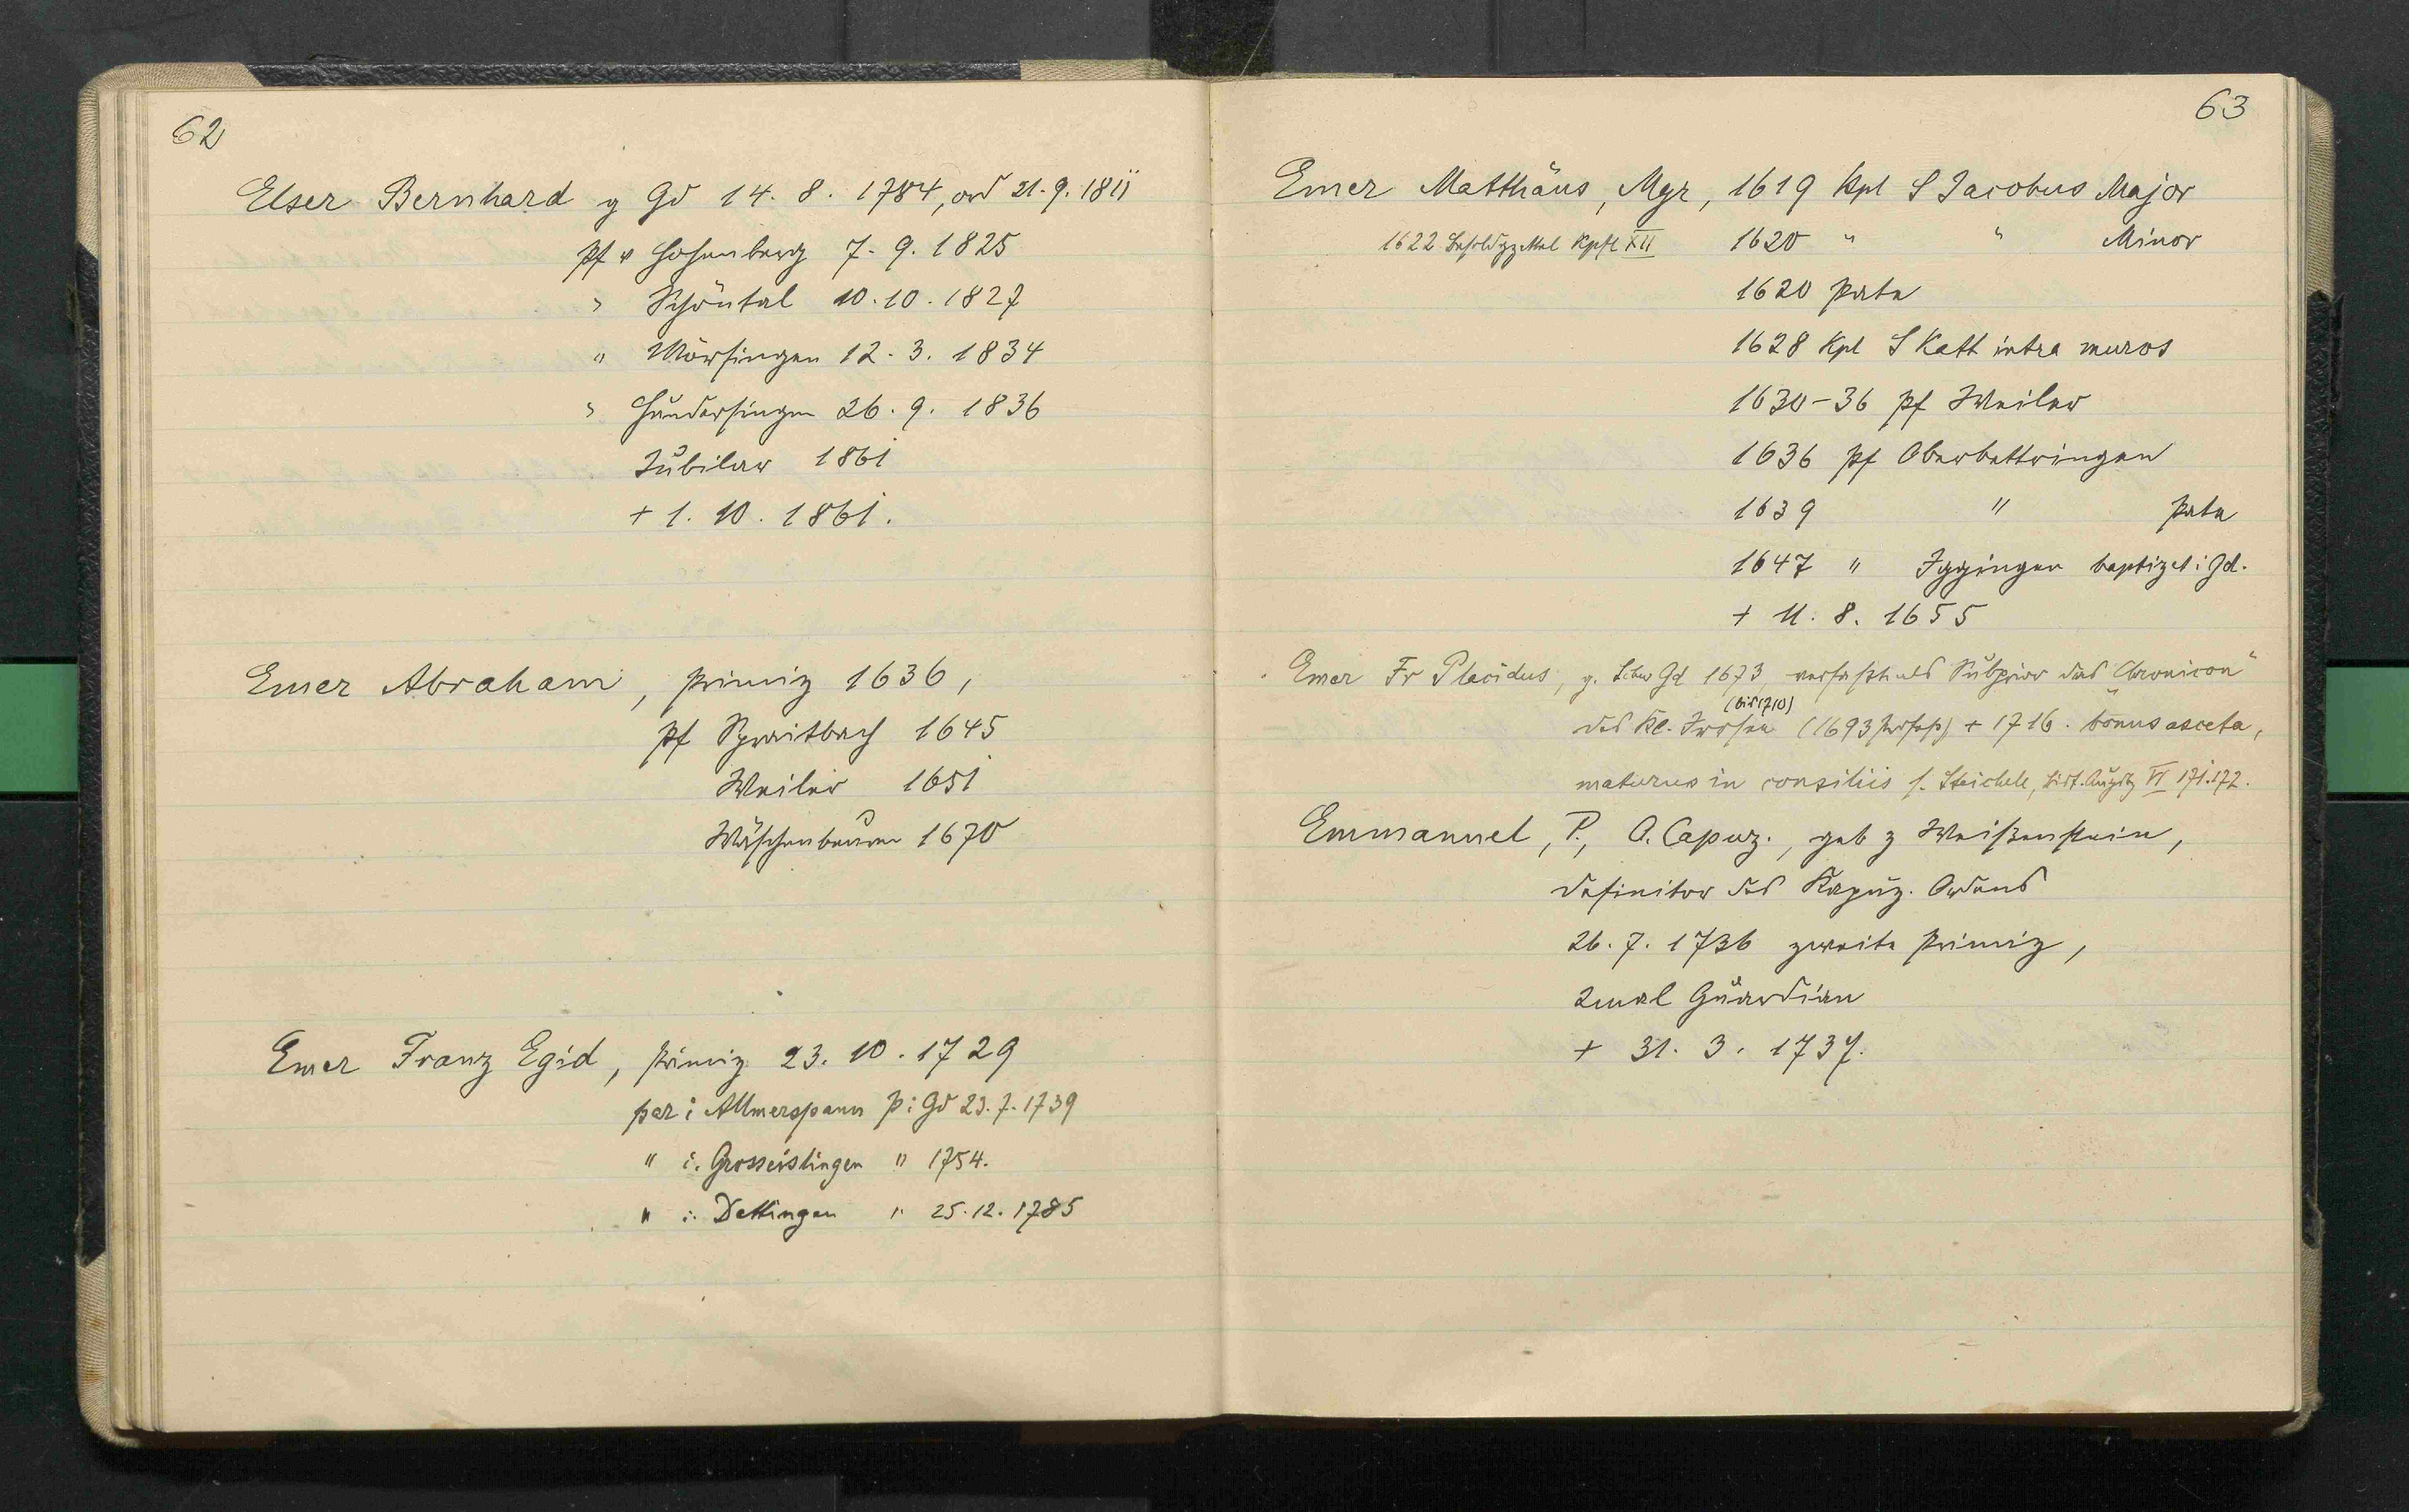 62
Elser Bernhard g Gd 14. 8. 1784, ord 21. 9. 1811
Pf v Hohenberg 7. 9. 1825
" Schöntal 10. 10. 1827
" Mörsingen 12. 3. 1834
" Hundersingen 26. 9. 1836
Jubilar 1861
+ 1. 10. 1861.
Emer Abraham, Primiz 1636,
Pf Spraitbach 1645
Weiler 1651
Wäschenbeuren 1670
Emer Franz Egid, Primiz 23. 10. 1729
par i Allmerspann p i Gd 23. 7. 1739
" i. Grosseislingen " 1754.
" i. Dettingen " 25. 12. 1785
63
Emer Matthäus, Mgr, 1619 Kpl S Jacobus Major
1622 Kpl XII 1620 " " Minor
1620 Pate
1628 Kpl S Kath intra muros
1630-36 Pf Weiler
1636 Pf Oberbettringen
1639 " Pate
1647 " Iggingen baptizet i Gd.
+ 11. 8. 1655
Emer Fr Placidus, g. Schw Gd 1673, verfaßt als Subprior das "Chronicon"
(bis 1710)
des Kl. Irrsee (1693 Profeß) + 1716. bonus asceta,
maturus in consiliis s. Steichele, Bist. Augsbg VI 171.172.
Emmanuel, P., O. Capuz., geb z Weißenstein,
Definitor des Kapuz. Ordens
26. 7. 1736 zweite Primiz,
2mal Guardian
+ 31. 3. 1737.